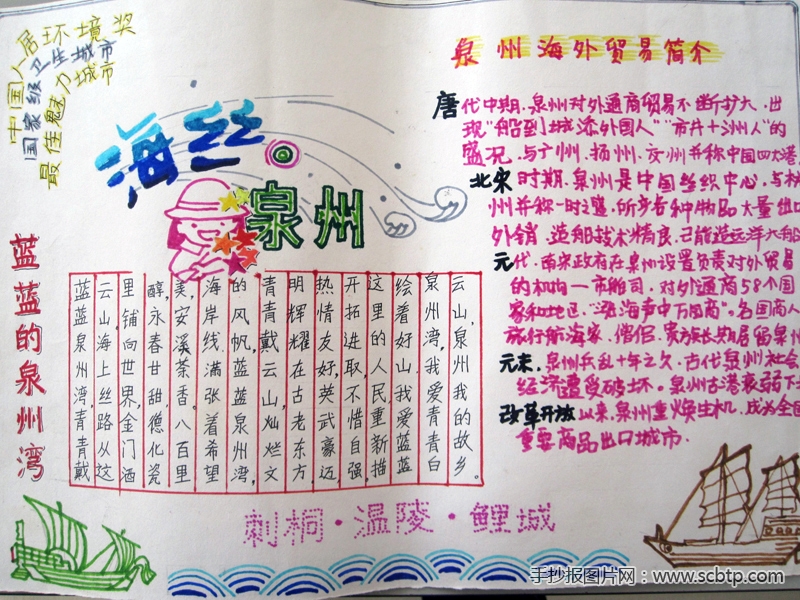 中国人居环境奖
国家级卫生城市
最佳魅力城市
海丝
泉州
蓝蓝的泉州湾
蓝蓝泉州湾,青青戴
云山海上丝路从这
里铺向世界,金门酒
醇,永春甘甜德化瓷
美,安溪茶香八百里
海岸线,满张着希望
的风帆蓝蓝泉州湾,
青青戴云山灿烂文
明辉耀在古老东方,
热情友好,英武豪迈,
开拓进取,不惜自强,
这里的人民重新描
绘着好山,我爱蓝蓝
泉州湾,我爱青青白
云山,泉州我的故乡。
泉州海外贸易简介
唐代中期,泉州对外通商贸易不断扩大,出
现"船到城添外国人""市井十洲人"的
盛况,与广州、扬州、交州并称中国四大港
北宋时期,泉州是中国丝织中心,与杭
州并称一时之盛,所产各种物品大量出口
外销,造船技术精良,已能造远洋大船
元代,南宋政府在泉州设置负责对外贸易
的机构一市舶司,对外通商58个国
家和地区,"涨海声中万国商"。各国商人
旅行航海家、僧侣、贵族长期居留泉州
元末,泉州兵乱十年之久,古代泉州社会
经济遭受破坏。泉州古港衰弱下去
改革开放以来,泉州重焕生机,成为全国
重要商品出口城市.
刺桐·温陵·鲤城
手抄报图片网:www.scbtp.com